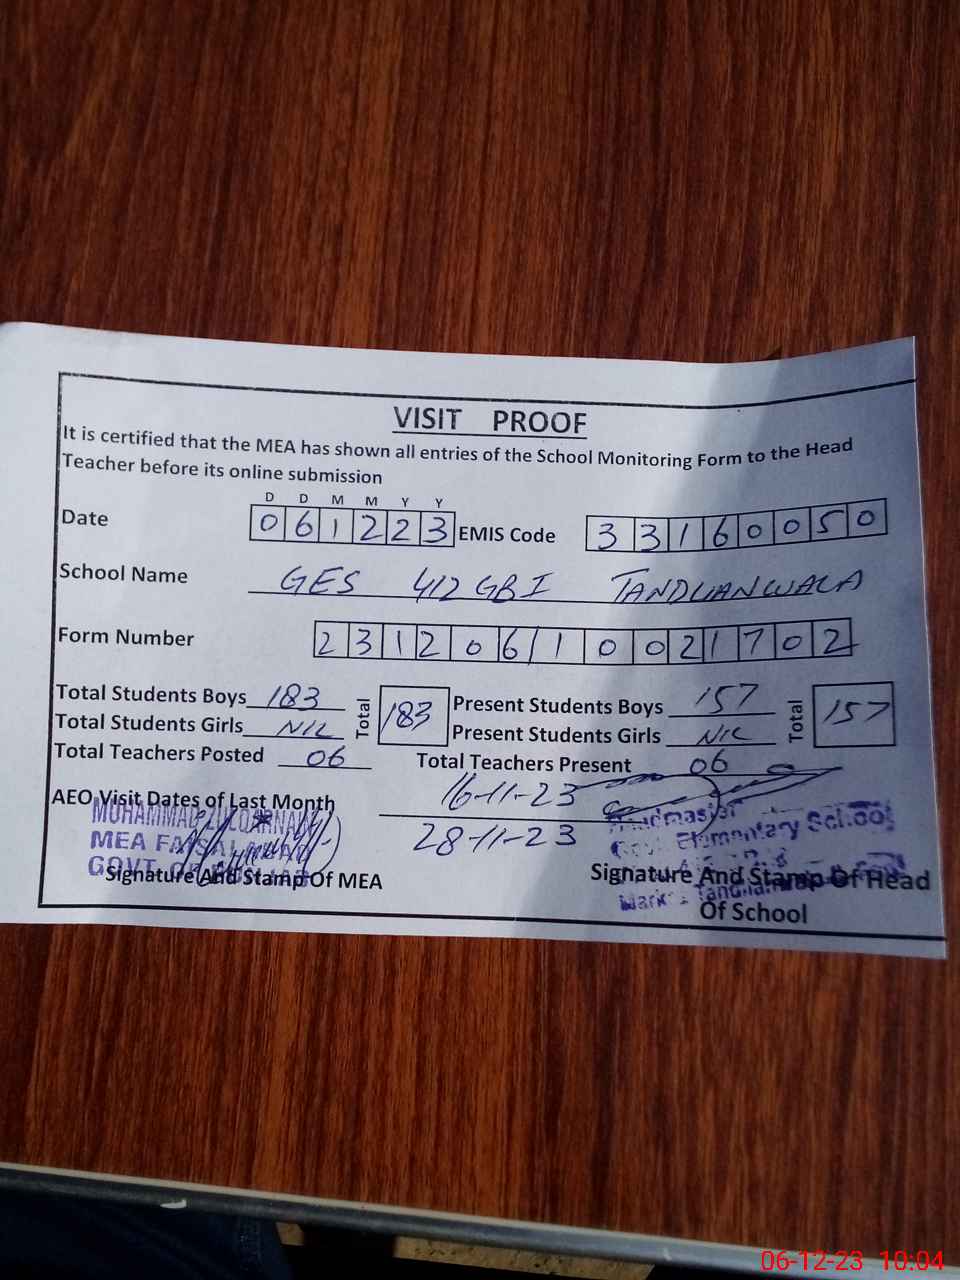 VISIT PROOF
It is certified that the MEA has shown all entries of the School Monitoring Form to the Head
Teacher before its online submission
D D M M Y Y
Date 061223 EMIS Code 33160050
School Name GES 412 GB I TANDLIANWALA
Form Number 231206/10021702
Total Students Boys 183 Total 183 Present Students Boys 157 Total 157
Total Students Girls NIL Present Students Girls NIL
Total Teachers Posted 06 Total Teachers Present 06
AEO Visit Dates of Last Month 16-11-23
28-11-23
MUHAMMAD
MEA FAISALABAD
GOVT. OF
Signature And Stamp Of MEA
Headmaster
Govt. Elementary School
Signature And Stamp Of Head
Of School
06-12-23 10:04